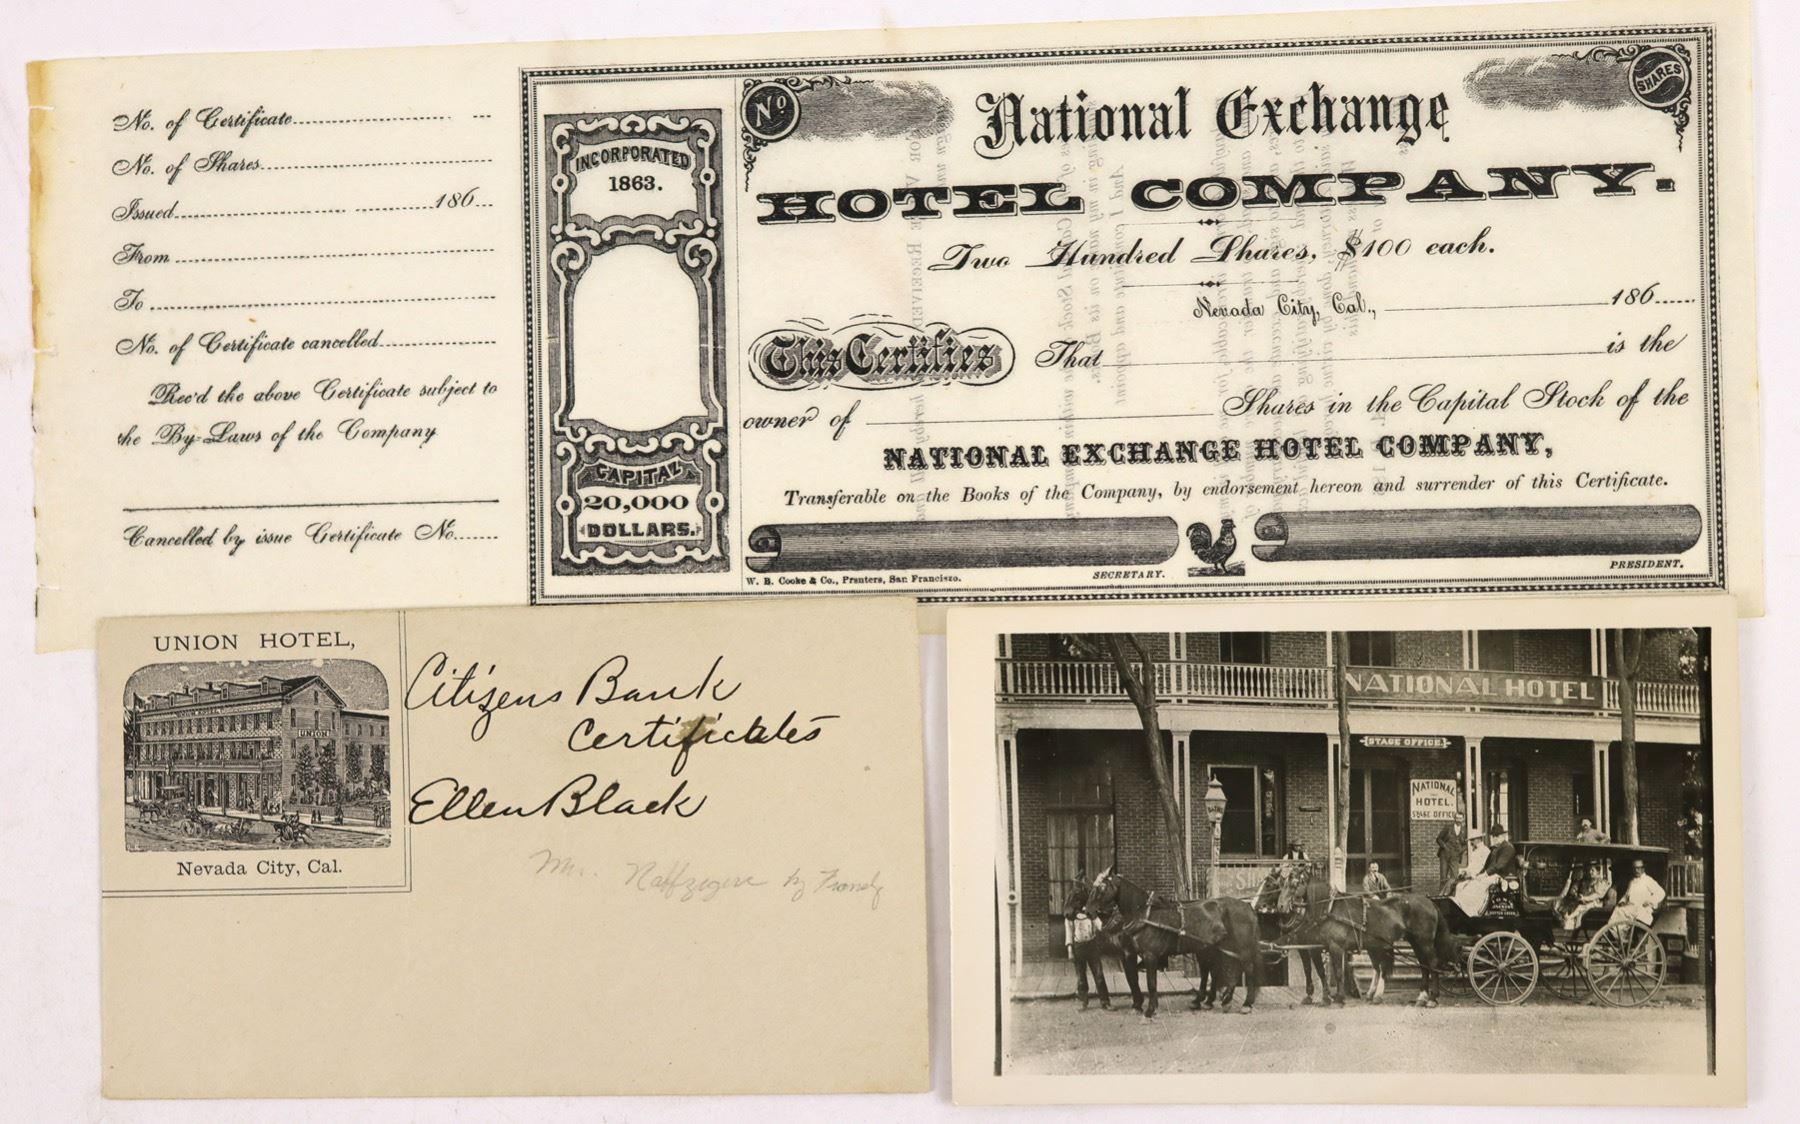 No. of Certificate
No. of Shares
Issued 186
From
To
No. of Certificate cancelled
Rec'd the above Certificate subject to
the By-Laws of the Company
Cancelled by issue Certificate No.
INCORPORATED
1863.
CAPITAL
20,000
DOLLARS.
No
SHARES
National Exchange
HOTEL COMPANY.
Two Hundred Shares, $100 each.
Nevada City, Cal., 186
This Certifies That is the
owner of Shares in the Capital Stock of the
NATIONAL EXCHANGE HOTEL COMPANY,
Transferable on the Books of the Company, by endorsement hereon and surrender of this Certificate.
W. B. Cooke & Co., Prenters, San Francisco.
SECRETARY.
PRESIDENT.
UNION HOTEL,
UNION
Nevada City, Cal.
Citizens Bank
Certificates
Ellen Black
NATIONAL HOTEL
STAGE OFFICE.
NATIONAL
HOTEL.
STAGE OFFICE